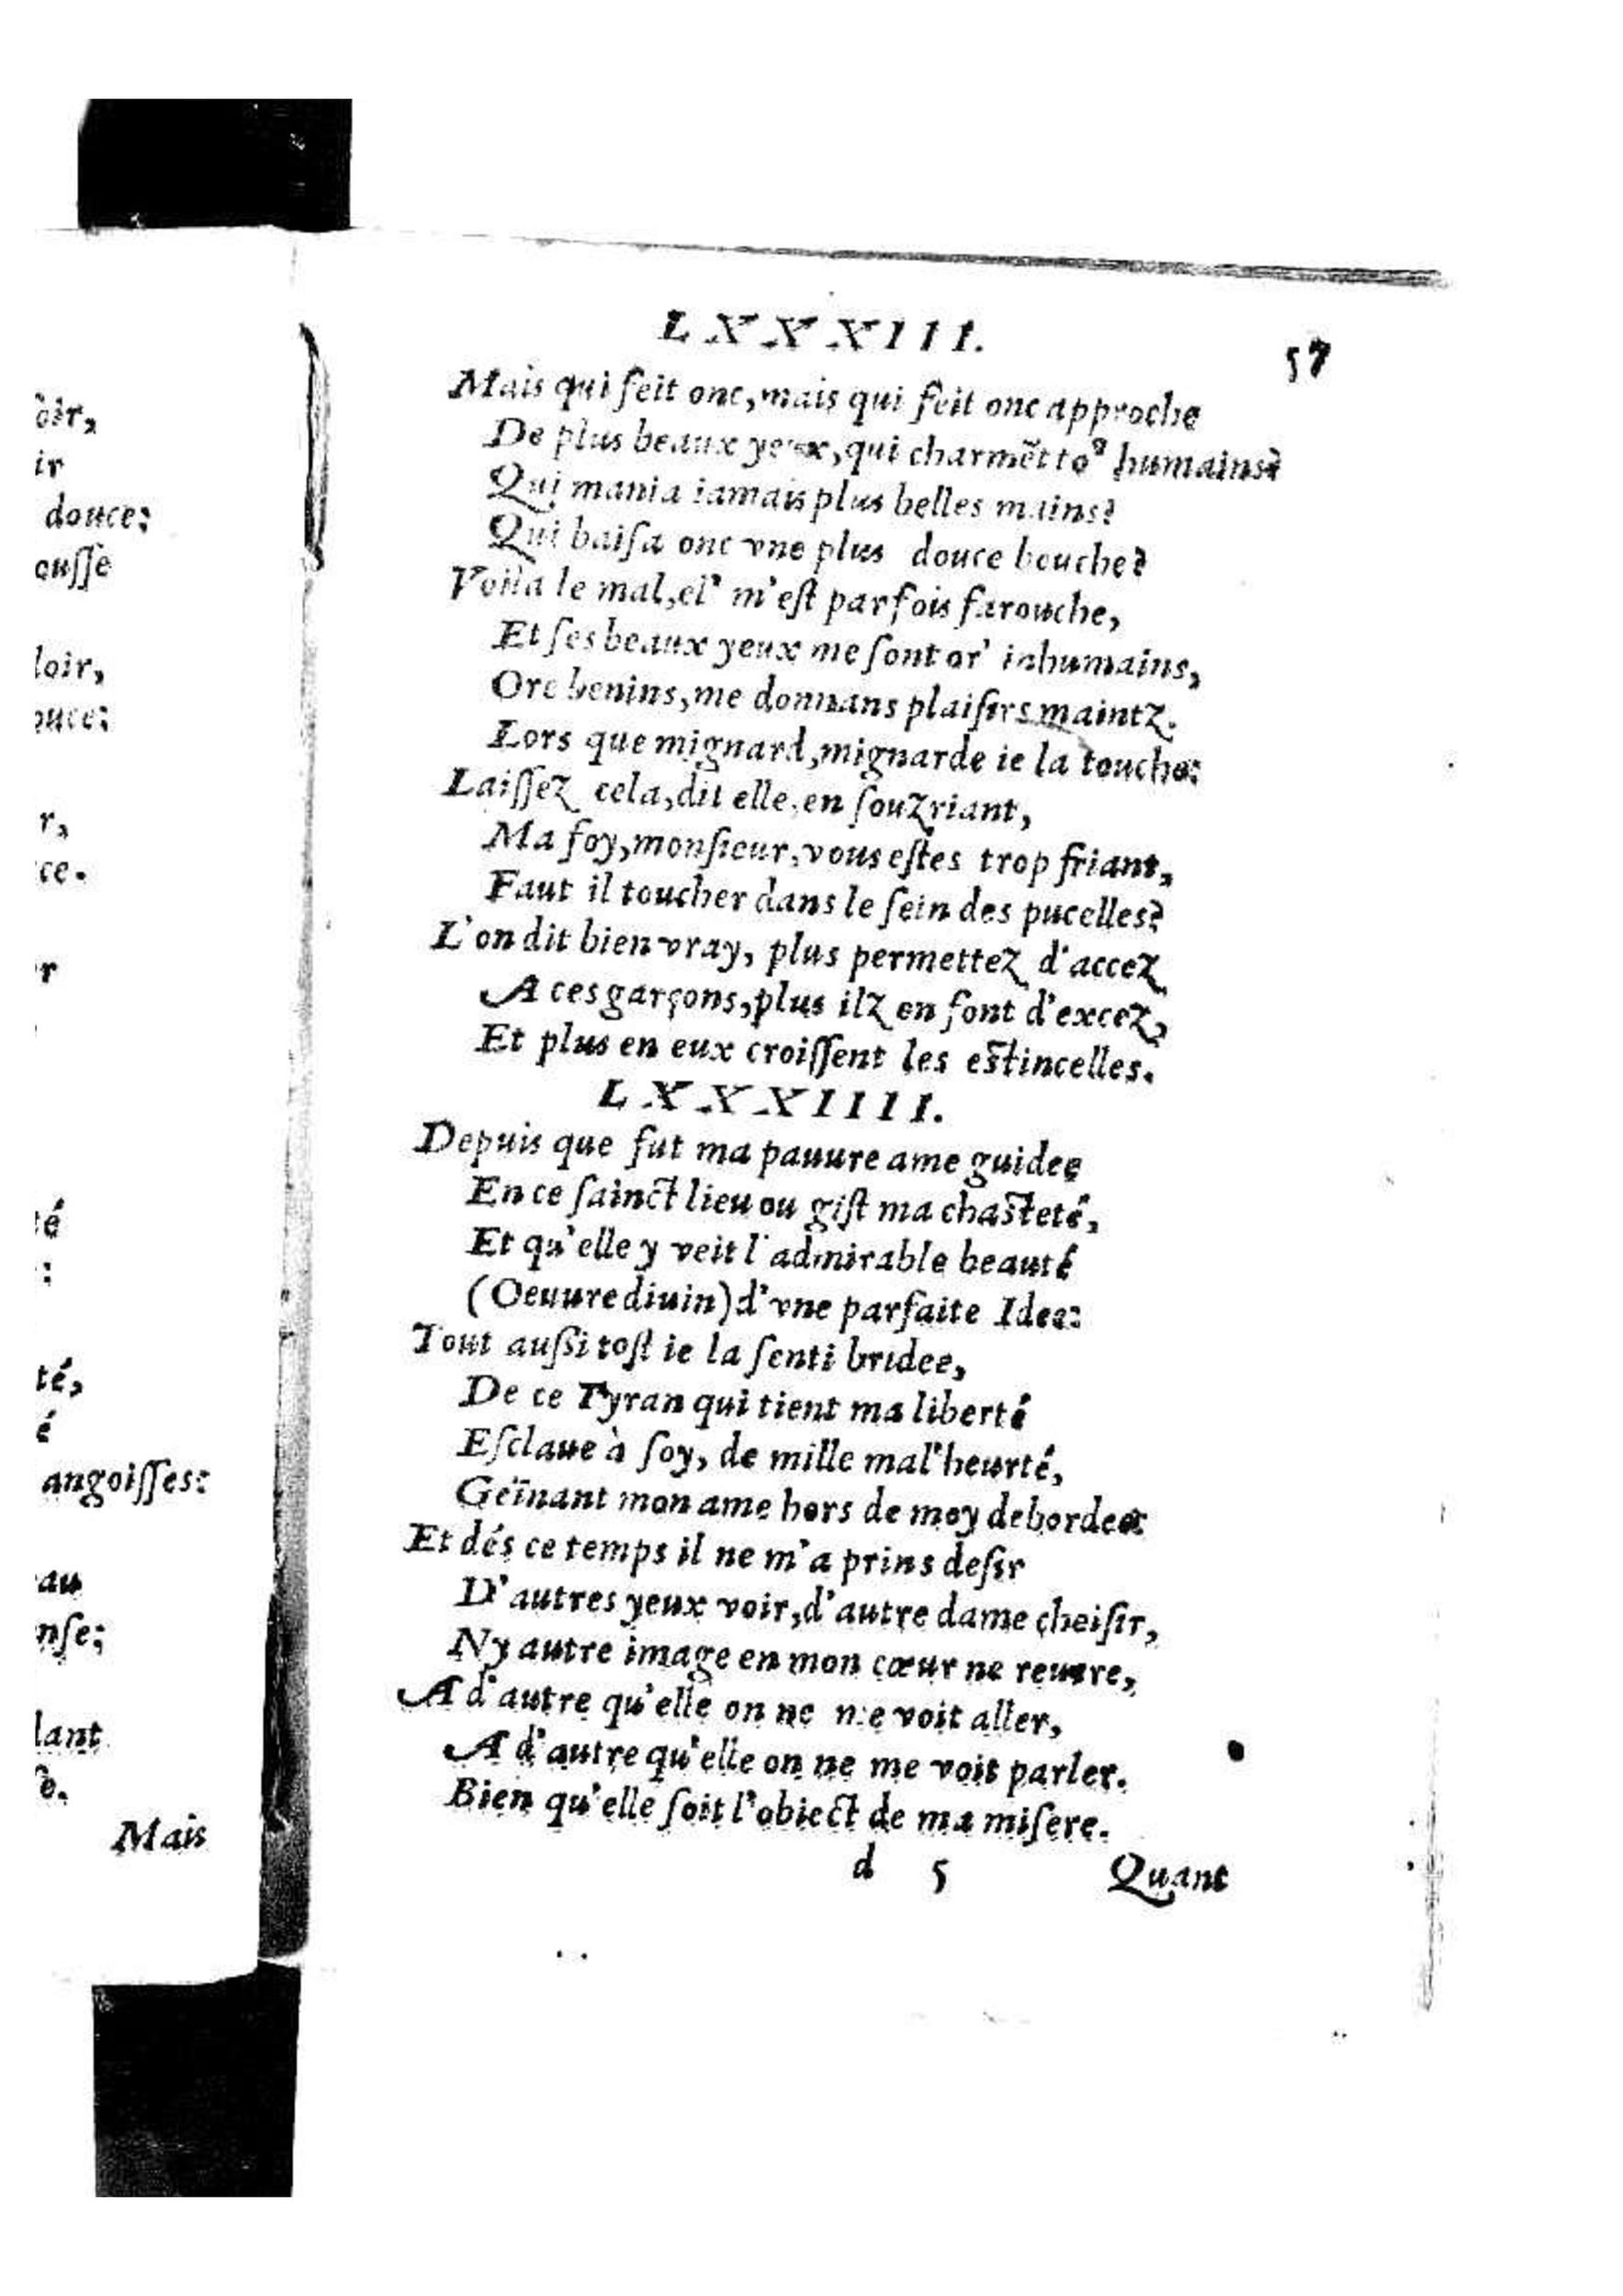 oir,
ir
douce;
ousse
loir,
ouce;
r,
ce.
r
té
:
té,
é
angoisses:
au
nse;
lant
se.
Mais
LXXXIII.
57
Mais qui feit onc, mais qui feit onc approche
De plus beaux yeux, qui charmẽt toꝰ humains?
Qui mania iamais plus belles mains?
Qui baiſa onc vne plus douce bouche?
Voila le mal, el' m'eſt parfois farouche,
Et ſes beaux yeux me ſont or' inhumains,
Ore benins, me donnans plaiſirs maintz.
Lors que mignard, mignarde ie la touche:
Laiſſez cela, dit elle, en ſouzriant,
Ma foy, monſieur, vous eſtes trop friant,
Faut il toucher dans le ſein des pucelles?
L'on dit bien vray, plus permettez d'accez
A ces garçons, plus ilz en font d'excez,
Et plus en eux croiſſent les eſtincelles.
LXXXIIII.
Depuis que fut ma pauure ame guidee
En ce ſainct lieu ou giſt ma chaſteté,
Et qu'elle y veit l'admirable beauté
(Oeuure diuin) d'vne parfaite Idea:
Tout auſſi toſt ie la ſenti bridee,
De ce Tyran qui tient ma liberté
Eſclaue à ſoy, de mille mal'heurté,
Geïnant mon ame hors de moy debordee:
Et dés ce temps il ne m'a prins deſir
D'autres yeux voir, d'autre dame choiſir,
Ny autre image en mon cœur ne reuere,
A d'autre qu'elle on ne me voit aller,
A d'autre qu'elle on ne me voit parler.
Bien qu'elle ſoit l'obiect de ma miſere.
d 5 Quant